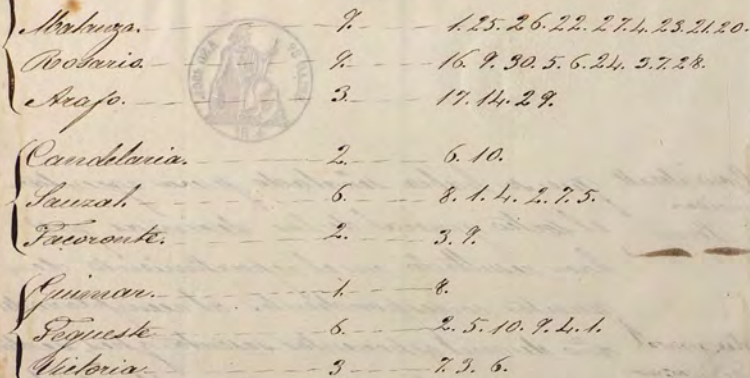 Matanza. 9. 1.25.26.22.27.4.23.21.20.
Rosario. 9. 16.9.30.5.6.24.3.7.28.
Arafo. 3. 17.14.29.
Candelaria. 2. 6.10.
Sauzal. 6. 8.1.4.2.7.5.
Tacoronte. 2. 3.9.
Guimar. 1. 8.
Tegueste 6. 2.5.10.9.4.1.
Victoria 3 7.3.6.